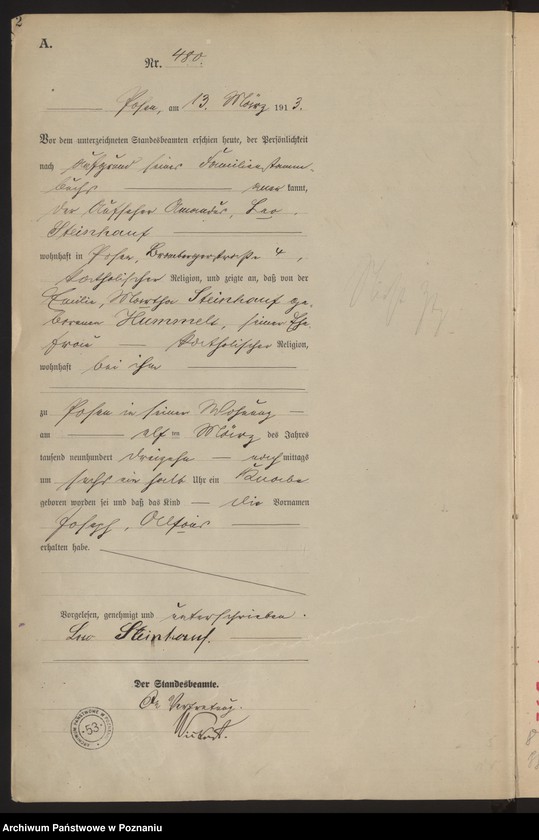 2
A.
Nr. 480.
Posen, am 13. März 1913.
Vor dem unterzeichneten Standesbeamten erschien heute, der Persönlichkeit
nach aufgrund seines Familienstamm-
buchs anerkannt,
der Aufseher Amandus, Leo
Steinhauf
wohnhaft in Posen, Brombergerstraße 4,
katholischer Religion, und zeigte an, daß von der
Emilie, Martha Steinhauf ge-
borenen Hummelt, seiner Ehe-
frau katholischer Religion,
wohnhaft bei ihm
zu Posen in seiner Wohnung
am elften März des Jahres
tausend neunhundert dreizehn nachmittags
um sechs ein halb Uhr ein Knabe
geboren worden sei und daß das Kind die Vornamen
Joseph, Alfons
erhalten habe.
Vorgelesen, genehmigt und unterschrieben.
Leo Steinhauf.
Der Standesbeamte.
In Vertretung.
ARCHIWUM PAŃSTWOWE W POZNANIU
53
Archiwum Państwowe w Poznaniu